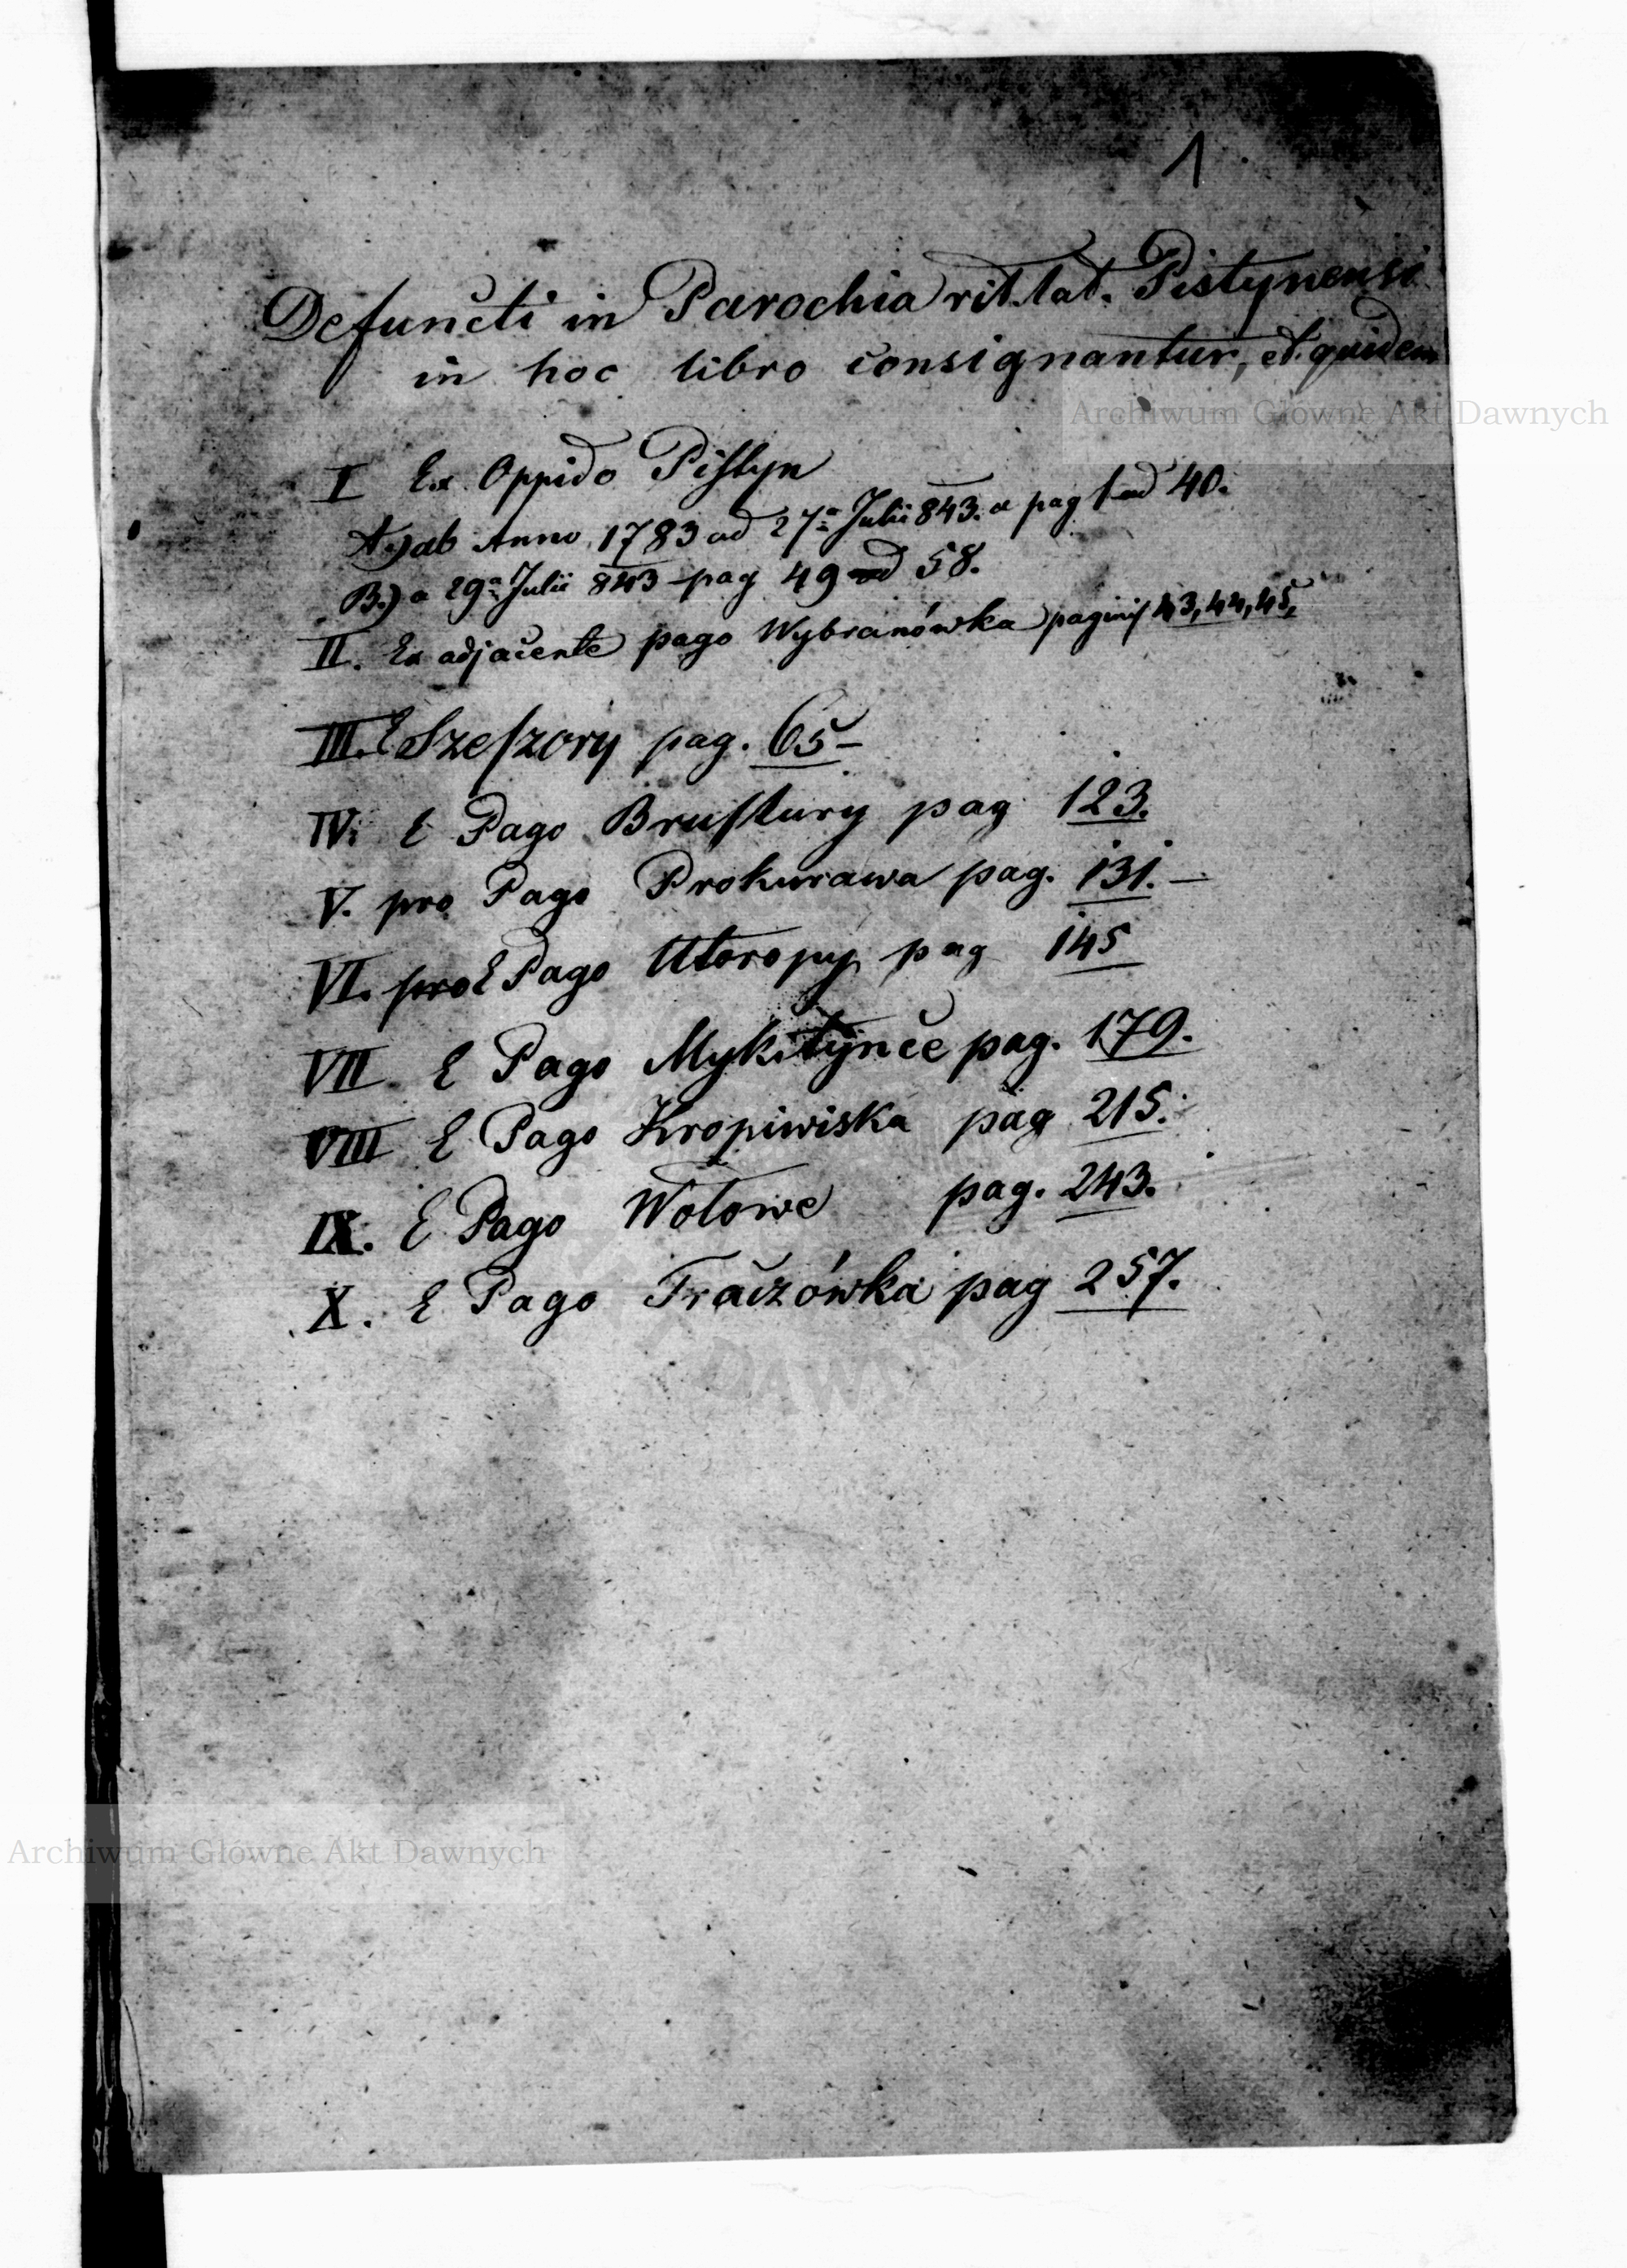 1
Defuncti in Parochia rit. lat. Pistynensi
in hoc libro consignantur, et quidem
Archiwum Główne Akt Dawnych
I Ex Oppido Pistyn
A.) ab Anno 1783 ad 27ª Julii 843. a pag 1 ad 40.
B.) a 29ª Julii 843 pag 49 ad 58.
II. Ex adjacente pago Wybranówka paginis 43, 44, 45.
III. E Szeszory pag. 65 –
IV. E Pago Brustury pag 123.
V. pro Pago Prokurawa pag. 131. –
VI. pro E Pago Utoropy pag 145
VII E Pago Mykitynce pag. 179.
VIII E Pago Kropiwiska pag 215.
IX. E Pago Wołowe pag. 243.
X. E Pago Traczówka pag 257.
DAWNYCH
Archiwum Główne Akt Dawnych